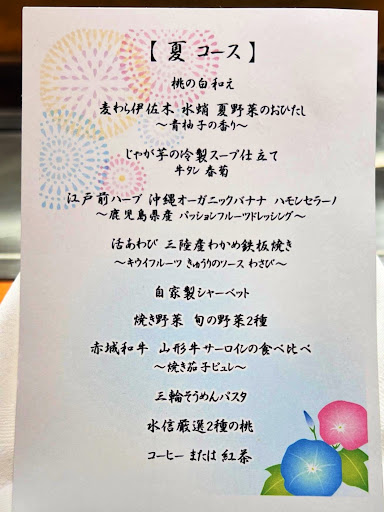 【夏 コース】
桃の白和え
麦わら伊佐木 水蛸 夏野菜のおひたし
〜青柚子の香り〜
じゃが芋の冷製スープ仕立て
牛タン 春菊
江戸前ハーブ 沖縄オーガニックバナナ ハモンセラーノ
〜鹿児島県産 パッションフルーツドレッシング〜
活あわび 三陸産わかめ鉄板焼き
〜キウイフルーツ きゅうりのソース わさび〜
自家製シャーベット
焼き野菜 旬の野菜2種
赤城和牛 山形牛サーロインの食べ比べ
〜焼き茄子ピュレ〜
三輪そうめんパスタ
水信厳選2種の桃
コーヒー または 紅茶